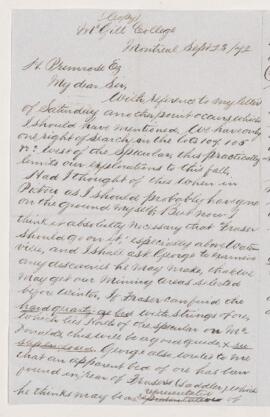 (Copy)
McGill College
Montreal Sept 23/72
H. Primrose Esq
My dear Sir,
With reference to my letter
of Saturday another point occurs which
I should have mentioned. We have only
one right of search, on the lots 104, 105
west of the Specular, this practically
limits our explorations to this fall.
Had I thought of this when in
Pictou as I should probably have gone
on the ground myself. But now I
think it absolutely necessary that Fraser
should go on it, especially above Water
ville, and I shall ask George to examine
any discoveries he may make, that we
may get our Mining areas selected
before Winter. If Fraser can find the
hard quartz bed with strings of ore,
which lies North of ore specular on Mc
Donalds this will be a good guide
George also writes to me
that an apparent bed of ore has been
found in rear of Frasers (Saddler) which
he thinks may be a representative of